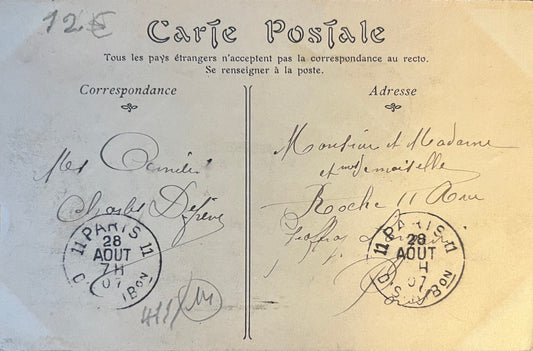 12€
Carte Postale
Tous les pays étrangers n'acceptent pas la correspondance au recto.
Se renseigner à la poste.
Correspondance
Adresse
Mes Amitiés
Charles
Monsieur et Madame
et Mademoiselle
Roche 11 Rue
Geoffroy
Paris
PARIS 11
28
AOUT
7 H
07
DISTRIBON
11 PARIS 11
28
AOUT
H
07
DISTRIBON